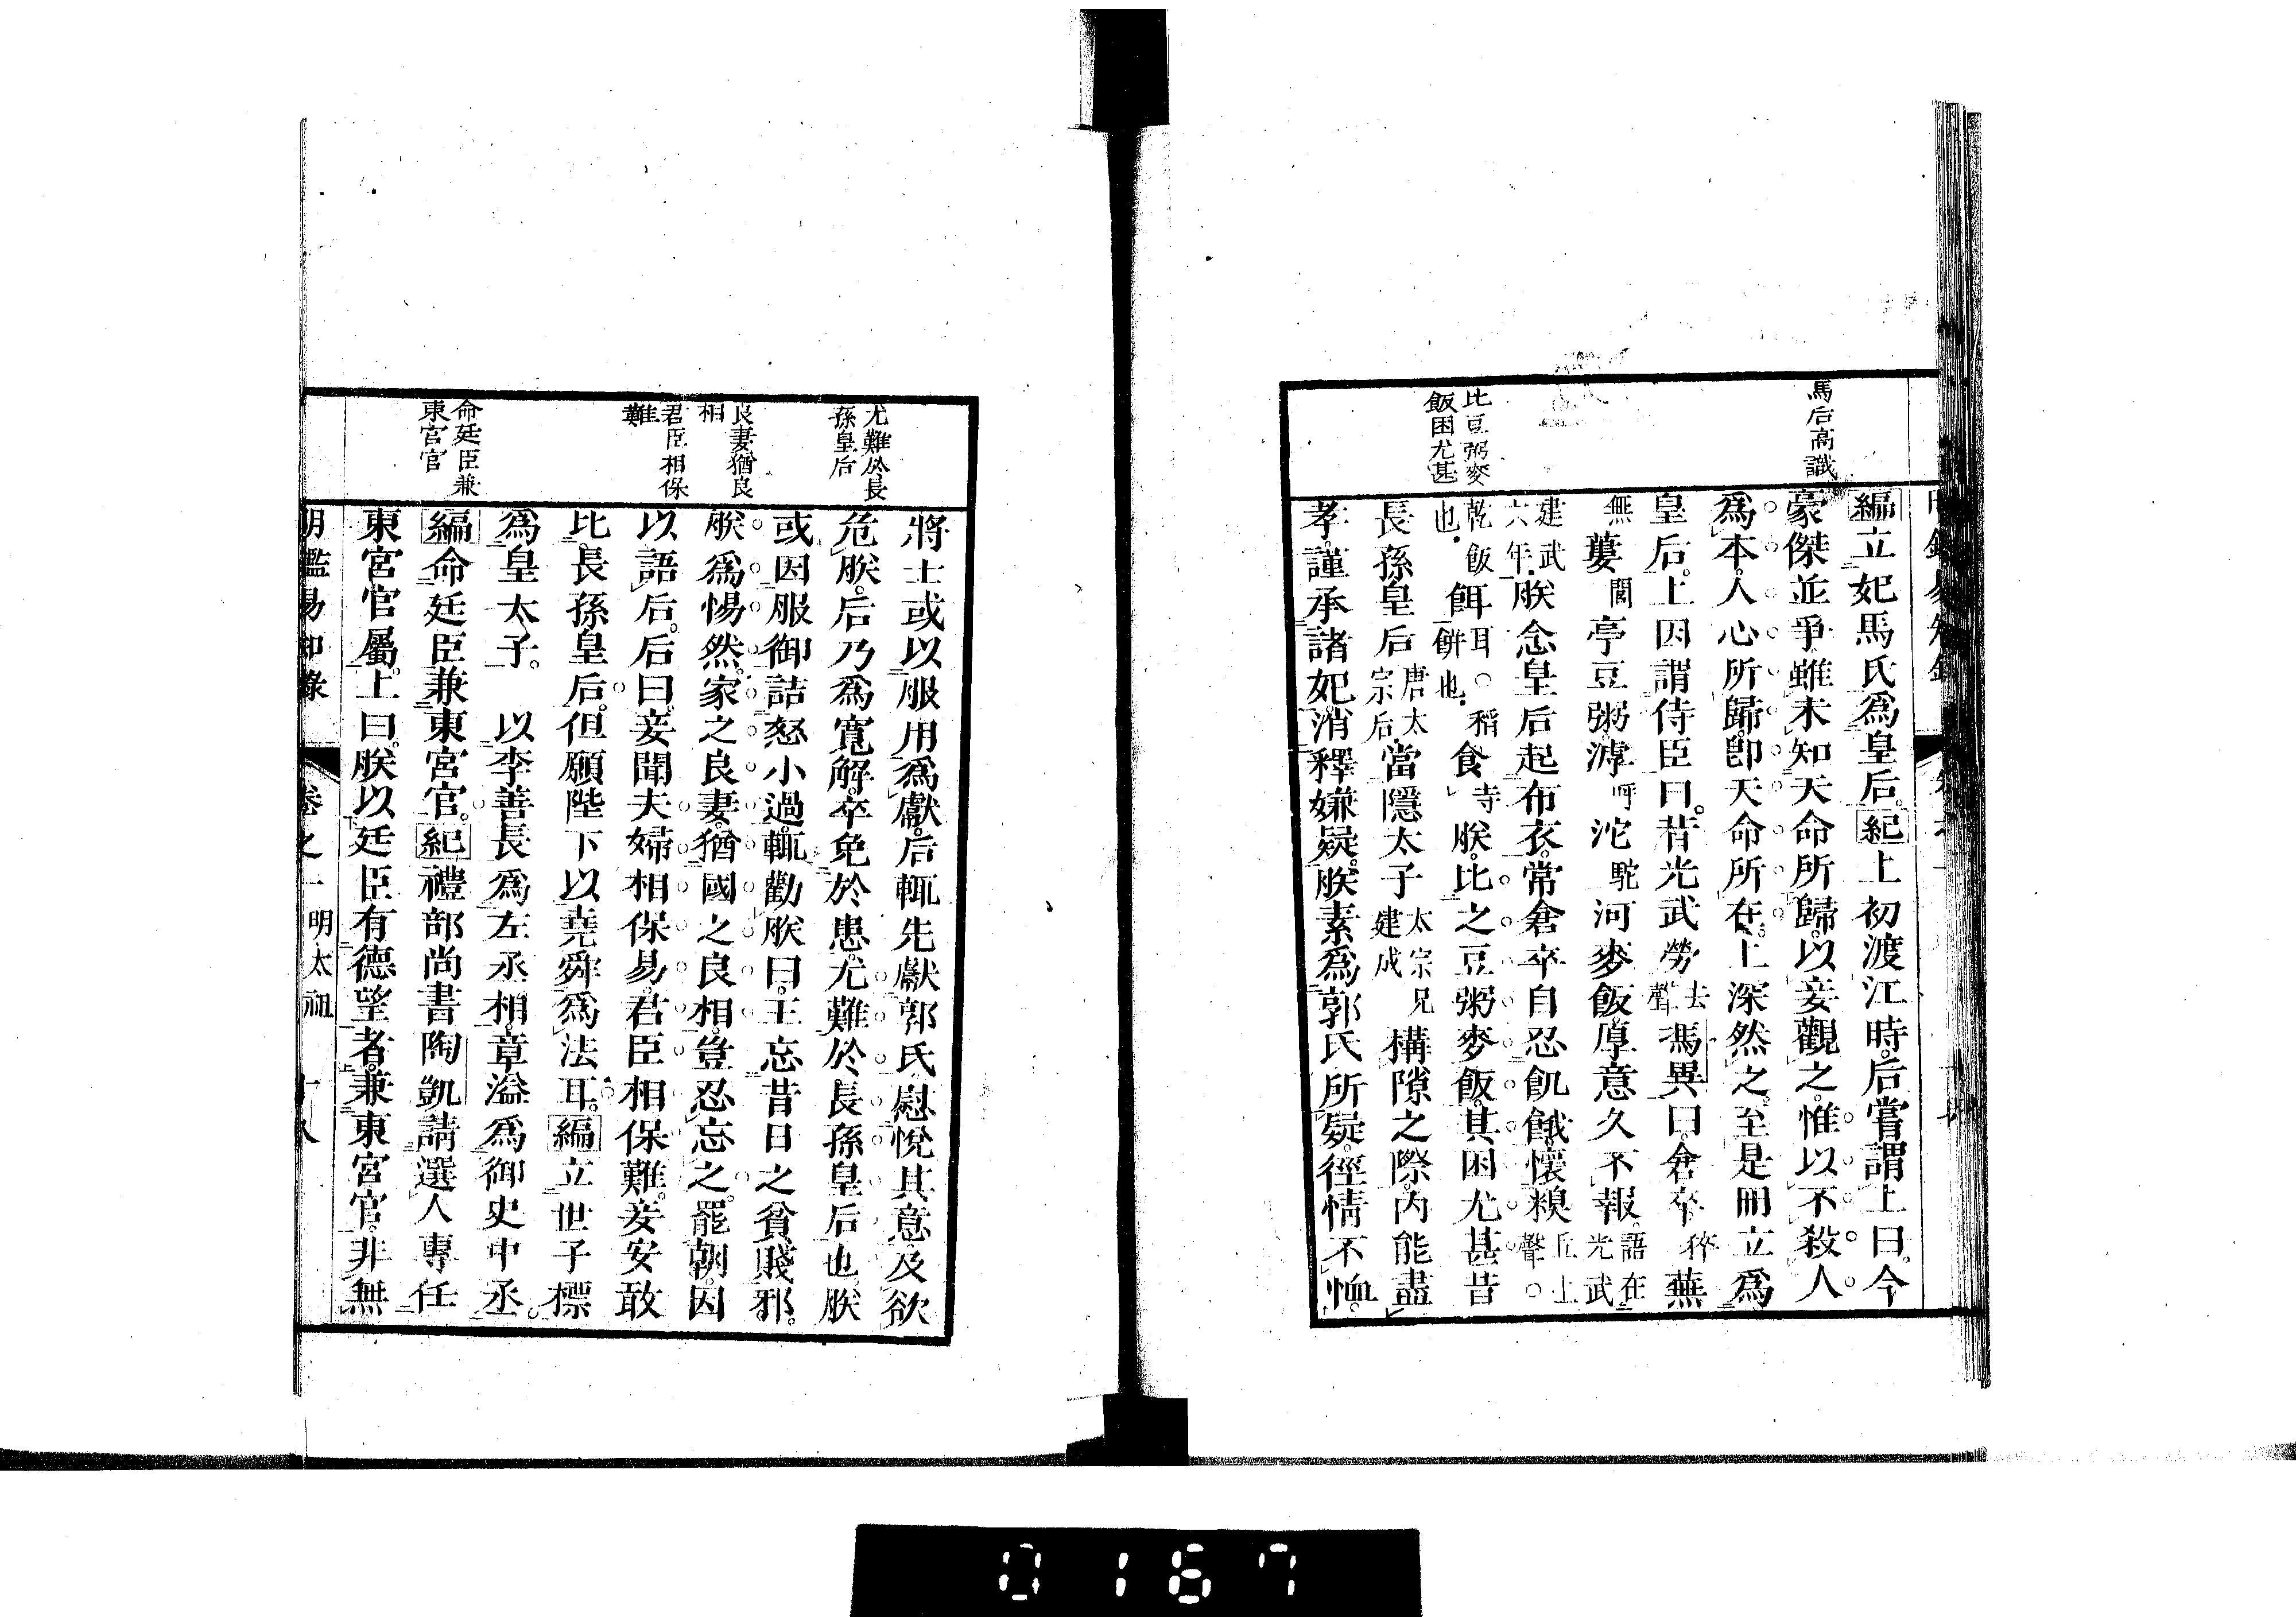 馬后高識
比豆粥麥
飯困尤甚
編立妃馬氏爲皇后。紀上初渡江時。后嘗謂上曰。今
豪傑並爭。雖未知天命所歸。以妾觀之。惟以不殺人
爲本。人心所歸。卽天命所在。上深然之。至是冊立爲
皇后。上因謂侍臣曰。昔光武勞去聲馮異曰。倉卒猝蕪
無蔞閭亭豆粥。滹呼沱駝河麥飯。厚意久不報。語在光武
建武六年。朕念皇后起布衣。常倉卒自忍飢餓。懷糗丘上聲○
乾飯也。餌耳○稻餅也。食寺朕。比之豆粥麥飯。其困尤甚。昔
長孫皇后唐太宗后。當隱太子太宗兄建成構隙之際。內能盡
孝。謹承諸妃。消釋嫌疑。朕素爲郭氏所疑。徑情不恤。
尤難於長
孫皇后
良妻猶良
相
君臣相保
難
命廷臣兼
東宮官
將士或以服用爲獻。后輒先獻郭氏。慰悅其意。及欲
危朕。后乃爲寬解。卒免於患。尤難於長孫皇后也。朕
或因服御詰怒小過。輒勸朕曰。王忘昔日之貧賤邪。
朕爲惕然。家之良妻。猶國之良相。豈忍忘之。罷朝。因
以語后。后曰。妾聞夫婦相保易。君臣相保難。妾安敢
比長孫皇后。但願陛下以堯舜爲法耳。編立世子標
爲皇太子。　以李善長爲左丞相。章溢爲御史中丞。
編命廷臣兼東宮官。紀禮部尚書陶凱請選人專任
東宮官屬。上曰。朕以廷臣有德望者。兼東宮官。非無
明鑑易知錄　卷之一　明太祖　十八
0167